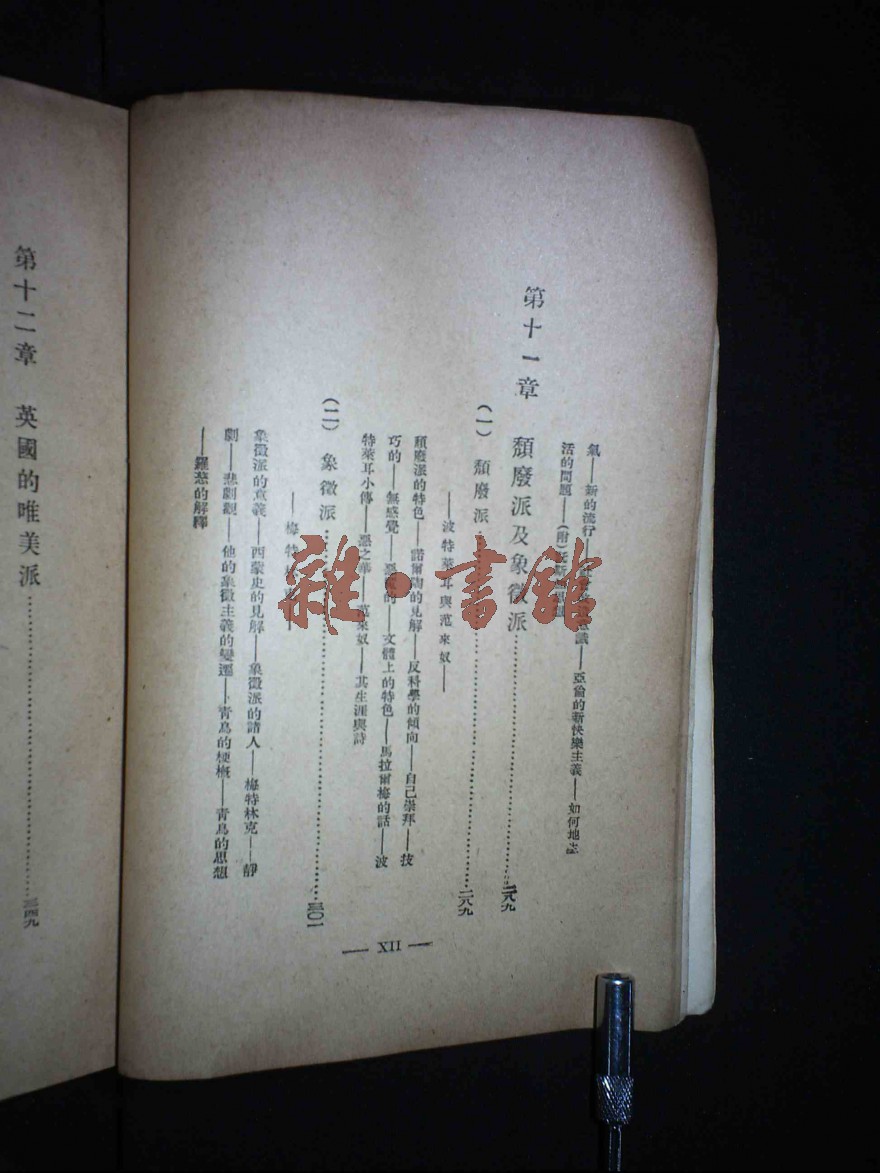 氣——新的流行——意識——亞倫的新快樂主義——如何地生
活的問題——(附)
第十一章 頹廢派及象徵派……二八九
(一) 頹廢派……二八九
——波特萊耳與范來奴——
頹廢派的特色——諾爾陶的見解——反科學的傾向——自己崇拜——技
巧的——無感覺——的——文體上的特色——馬拉爾梅的話——波
特萊耳小傳——惡之華——范來奴——其生涯與詩
(二) 象徵派……三〇一
——梅特林克——
象徵派的意義——西蒙史的見解——象徵派的諸人——梅特林克——靜
劇——悲劇觀——他的象徵主義的變遷——青鳥的梗概——青鳥的思想
——羅慈的解釋
— XII —
第十二章 英國的唯美派……三四九
雜·書館